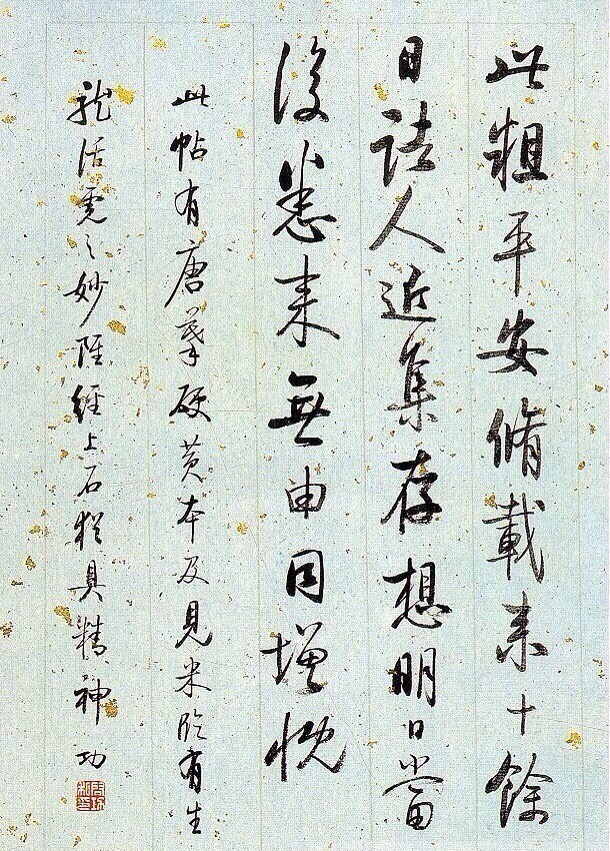 此粗平安脩載来十餘
日諸人近集存想明日當
復悉来無由同增慨
此帖有唐摹硬黄本及見米臨有生
龍活虎之妙雖經上石猶具精神 功